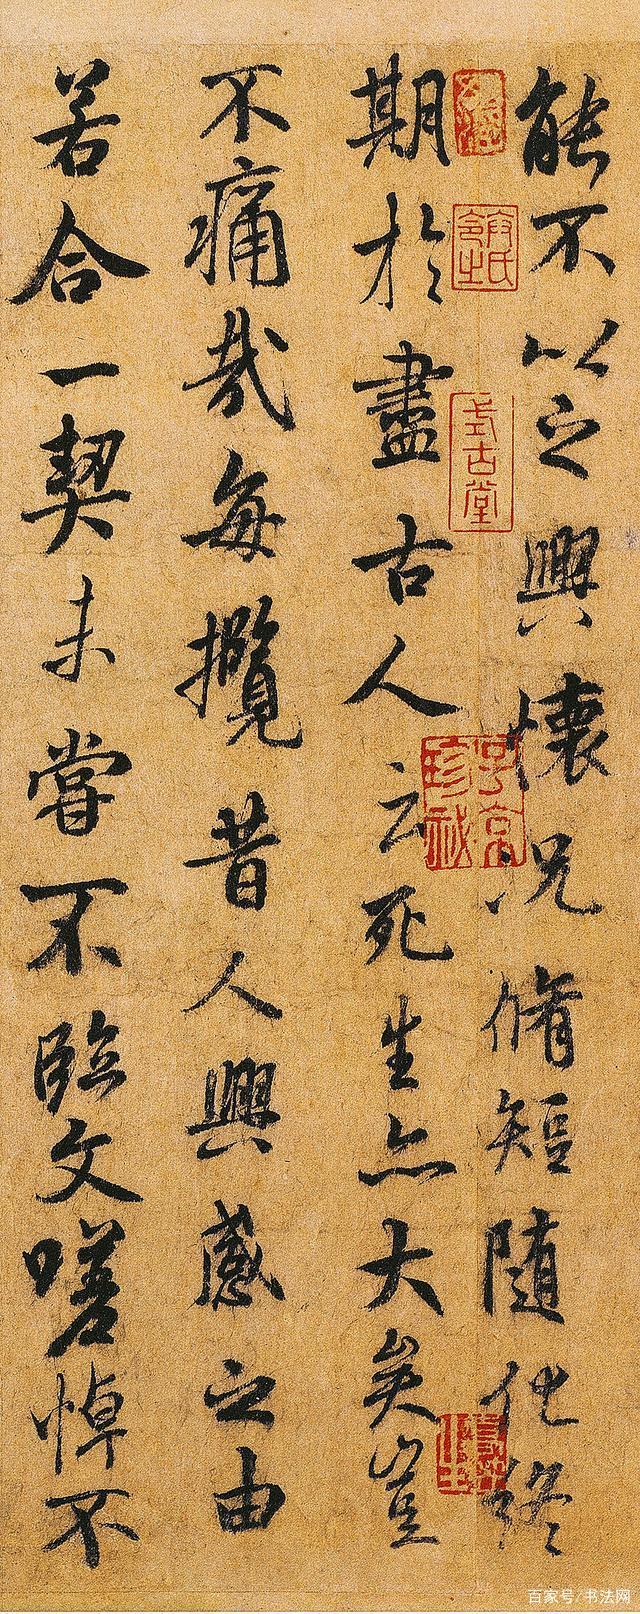 能不以之興懷況脩短隨化終
期於盡古人云死生亦大矣豈
不痛哉每攬昔人興感之由
若合一契未嘗不臨文嗟悼不
式古堂
子京珍祕
百家号/书法网